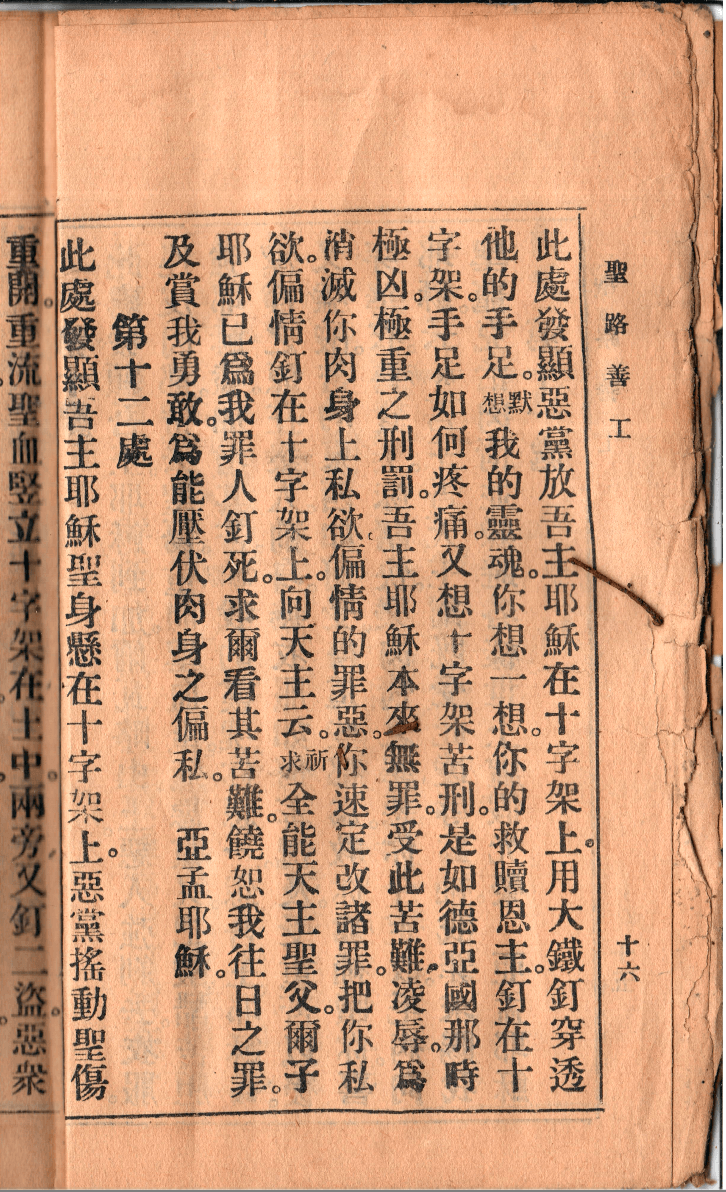 聖路善工
十六
此處發顯惡黨放吾主耶穌在十字架上。用大鐵釘穿透
他的手足。默想我的靈魂。你想一想。你的救贖恩主。釘在十
字架。手足如何疼痛。又想十字架苦刑。是如德亞國那時
極凶。極重之刑罰。吾主耶穌本來無罪。受此苦難。凌辱。為
消滅你肉身上私欲。偏情的罪惡。你速定改諸罪。把你私
欲。偏情釘在十字架上。向天主云。祈求全能天主聖父。爾子
耶穌已為我罪人釘死。求爾看其苦難。饒恕我往日之罪。
及賞我勇敢。為能壓伏肉身之偏私。 亞孟耶穌。
第十二處
此處發顯吾主耶穌聖身懸在十字架上。惡黨搖動聖傷
重開。重流聖血。竪立十字架在土中。兩旁又釘二盜。惡衆